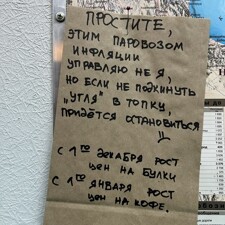 ПРОСТИТЕ,
ЭТИМ ПАРОВОЗОМ
ИНФЛЯЦИИ
УПРАВЛЯЮ НЕ Я,
НО ЕСЛИ НЕ ПОДКИНУТЬ
„УГЛЯ" В ТОПКУ,
ПРИДЁТСЯ ОСТАНОВИТЬСЯ
С 1ГО ДЕКАБРЯ РОСТ
ЦЕН НА БУЛКИ
С 1ГО ЯНВАРЯ РОСТ
ЦЕН НА КОФЕ.